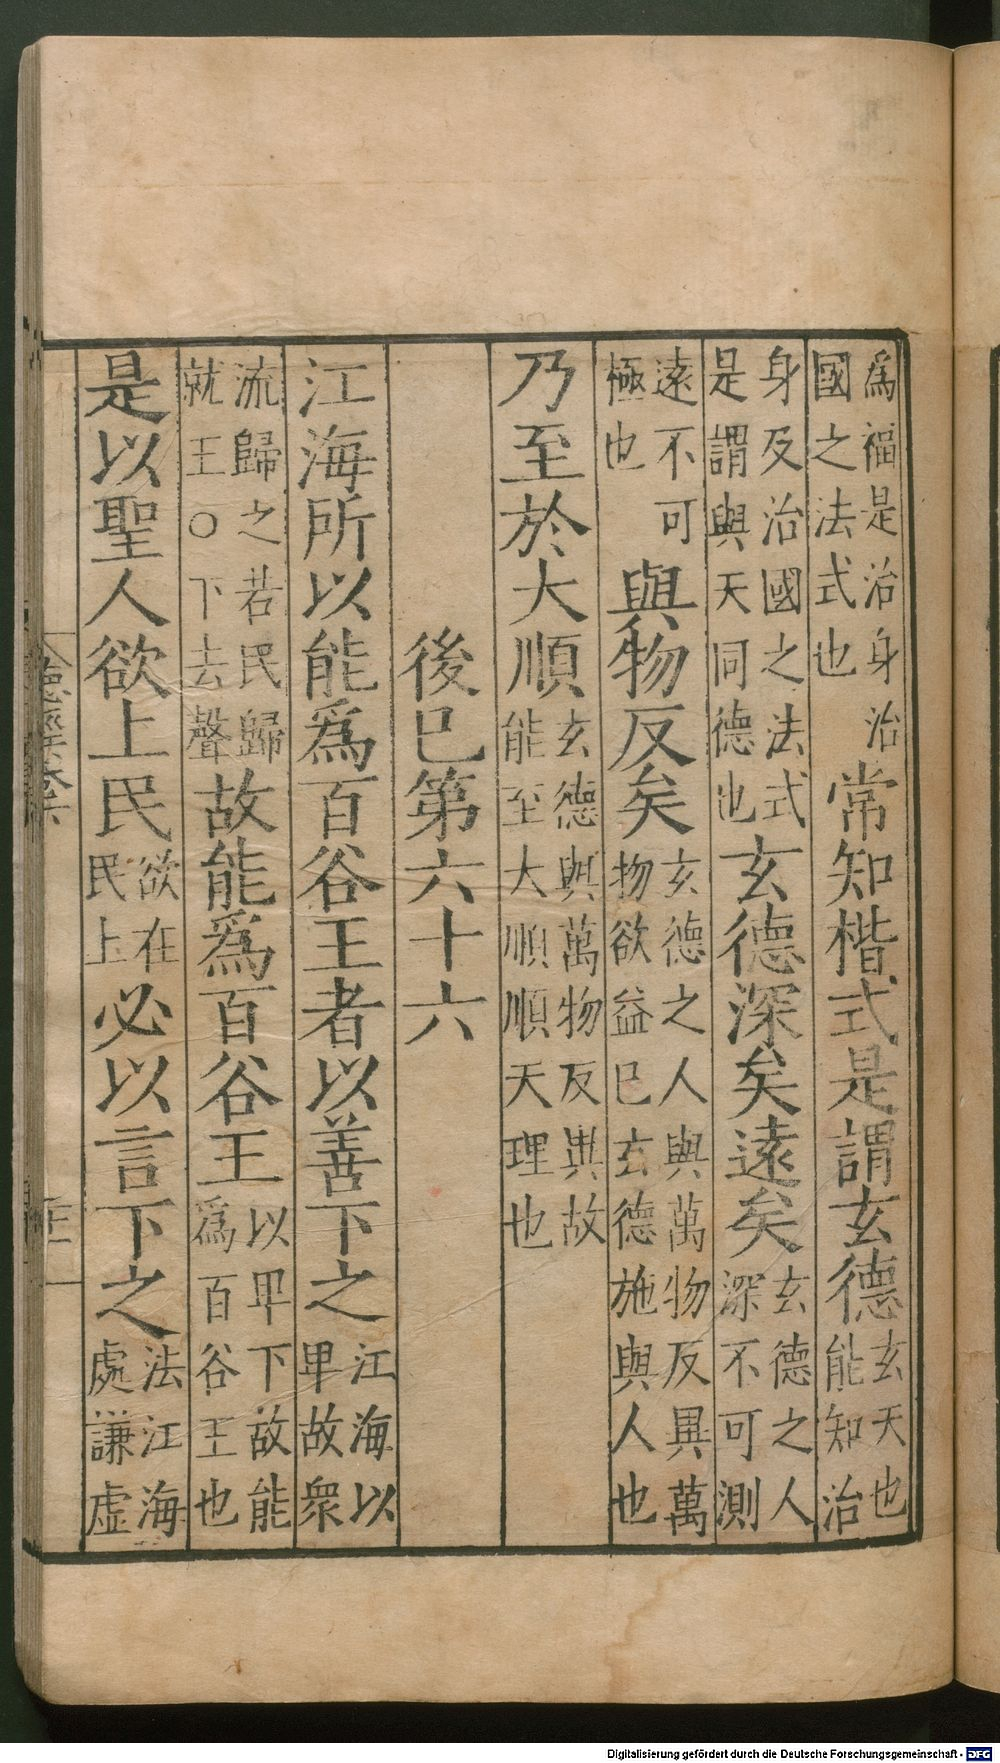 為福是治身治國之法式也常知楷式是謂玄德玄天也能知治
身及治國之法式是謂與天同德也玄德深矣遠矣玄德之人深不可測
遠不可極也與物反矣玄德之人與萬物反異萬物欲益己玄德施與人也
乃至於大順玄德與萬物反異故能至大順順天理也
後己第六十六
江海所以能為百谷王者以善下之江海以卑故眾
流歸之若民歸就王○下去聲故能為百谷王以卑下故能為百谷王也
是以聖人欲上民欲在民上必以言下之法江海處謙虛
德經
Digitalisierung gefördert durch die Deutsche Forschungsgemeinschaft - DFG